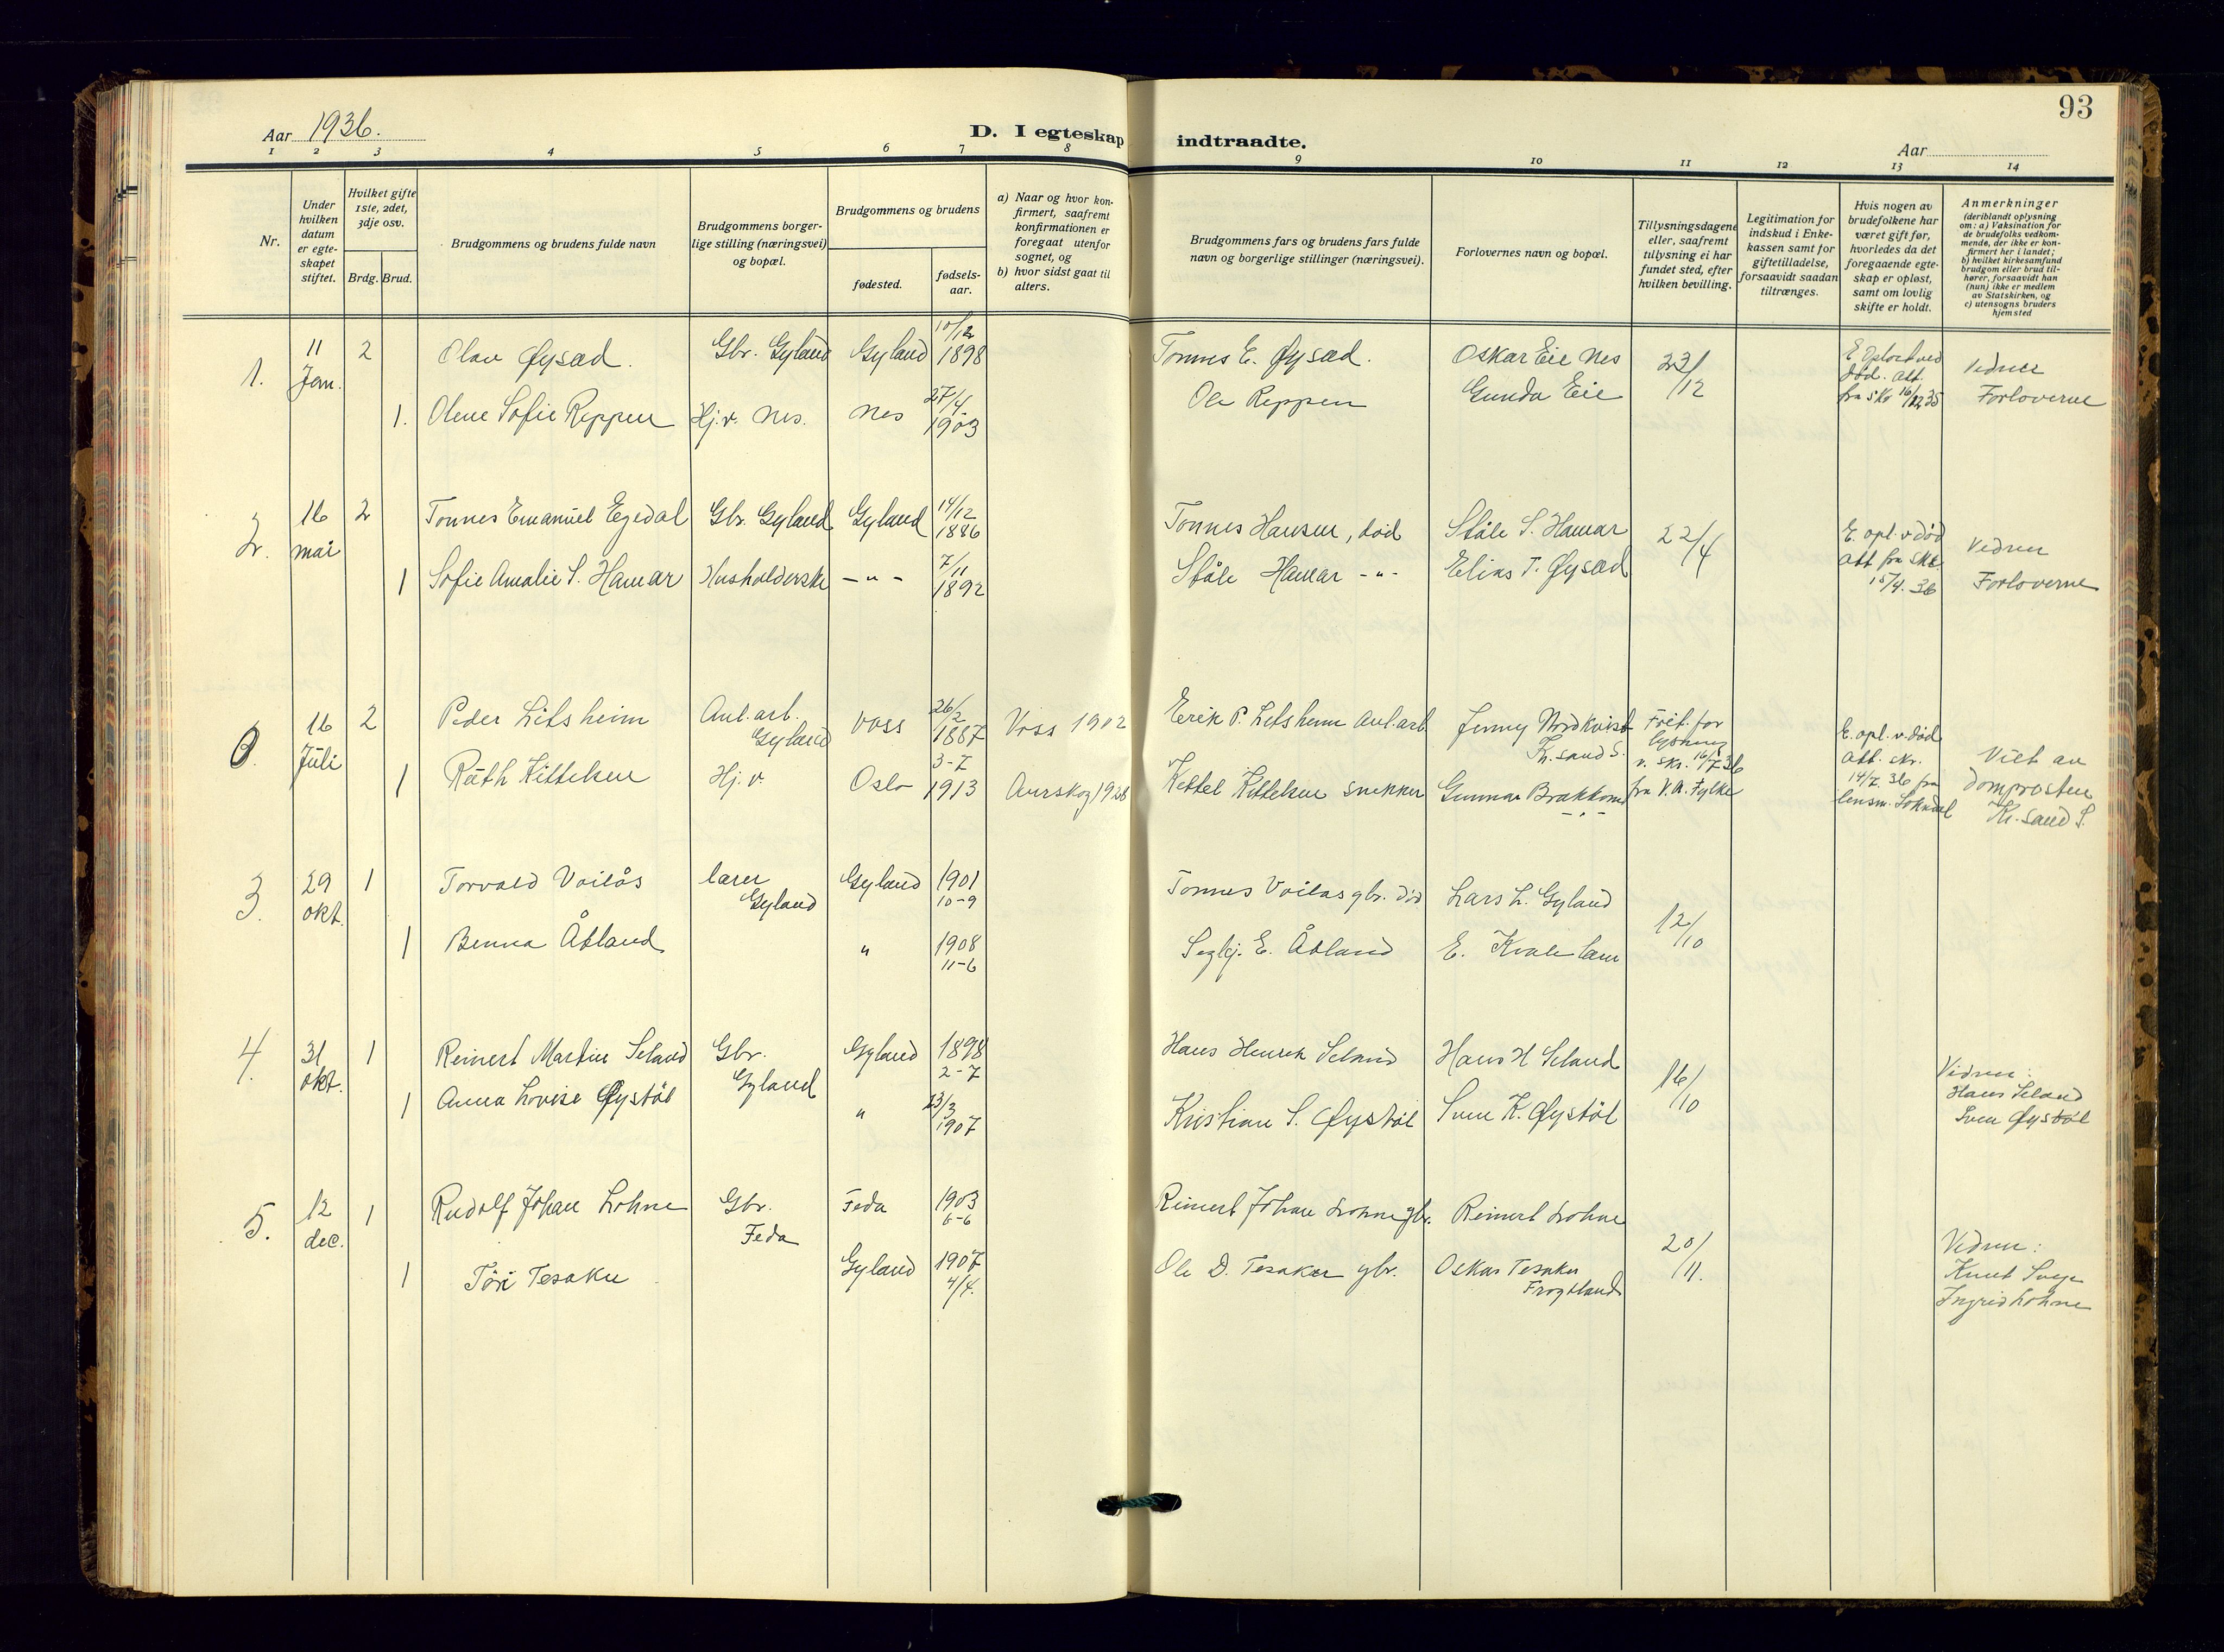 93
Aar 1936.
D. I egteskap indtraadte.
Aar
1 2 3 4 5 6 7 8 9 10 11 12 13 14
Nr.
Under
hvilken
datum
er egte-
skapet
stiftet.
Hvilket gifte
1ste, 2det,
3dje osv.
Brdg. Brud.
Brudgommens og brudens fulde navn
Brudgommens borger-
lige stilling (næringsvei)
og bopæl.
Brudgommens og brudens
fødested.
fødsels-
aar.
a) Naar og hvor kon-
firmert, saafremt
konfirmationen er
foregaat utenfor
sognet, og
b) hvor sidst gaat til
alters.
Brudgommens fars og brudens fars fulde
navn og borgerlige stillinger (næringsvei).
Forlovernes navn og bopæl.
Tillysningsdagene
eller, saafremt
tillysning ei har
fundet sted, efter
hvilken bevilling.
Legitimation for
indskud i Enke-
kassen samt for
giftetilladelse,
forsaavidt saadan
tiltrænges.
Hvis nogen av
brudefolkene har
været gift før,
hvorledes da det
foregaaende egte-
skap er opløst,
samt om lovlig
skifte er holdt.
Anmerkninger
(deriblandt oplysning
om: a) Vaksination for
de brudefolks vedkom-
mende, der ikke er kon-
firmert her i landet;
b) hvilket kirkesamfund
brudgom eller brud til-
hører, forsaavidt han
(hun) ikke er medlem
av Statskirken, og
c) utensogns bruders
hjemsted
1.
11
Jan.
2
Olav Øysæd.
Gbr. Gyland
Gyland
10/12
1898
Tønnes E. Øysæd.
Oskar Eie Nes
23/
12
E. Opløst ved
død. Att.
fra skr 16/12 35
Vidner
Forloverne
1.
Olene Sofie Reppen
Hj.v. Nes.
Nes
27/4
1903
Ole Reppen
Gunda Eie
2.
16
mai
2
Tønnes Emanuel Egedal
Gbr. Gyland
Gyland
14/12
1886
Tønnes Hansen, død
Ståle S. Hamar
22/4
E. opl. v død
att fra skr
15/4. 36
Vidner
Forloverne
1
Sofie Amalie S. Hamar
Husholderske
- " -
7/11
1892
Ståle Hamar - " -
Elias T. Øysæd
0.
16
Juli
2
Peder Litsheim
Anl.arb.
Gyland
Voss
26/2
1887
Voss 1902
Erik P. Litsheim Anl.arb.
Jenny Nordkvist
K.sand S.
Frit. for
lysning
v. skr. 16/7 36
fra V.A. Fylke
E. opl. v. død
Att. skr.
14/7 36 fra
lensm. Sokndal
Viet av
domprosten
Kr.sand S.
1
Ruth Kittelsen
Hj.v.
Oslo
3-7
1913
Aurskog 1928
Kittel Kittelsen snekker
Gunnar
- " -
3.
29
okt.
1
Torvald Voilås
lærer
Gyland
Gyland
1901
10-9
Tønnes Voilås gbr. død
Lars L. Gyland
12/
10
1
Benna Åtland
"
1908
11-6
E. Åtland
E. Kvale lærer
4.
31
okt.
1
Reinert Martin Seland
Gbr.
Gyland
Gyland
1898
2-7
Hans Henrik Seland
Hans H Seland
16/
10
Vidner:
Hans Seland
Sven Øystøl
1
Anna Lovise Øystøl
"
23/3
1907
Kristian S. Øystøl
Sven K. Øystøl
5.
12
dec.
1
Rudolf Johan Lohne
Gbr.
Feda
Feda
1903
6-6
Reinert Johan Lohne gbr.
Reinert Lohne
20/
11.
Vidner:
Knut
Ingrid Lohne
1
Tori Tesaker
Gyland
1907
4/4.
Ole D. Tesaker gbr.
Oskar Tesaker
Frøytland